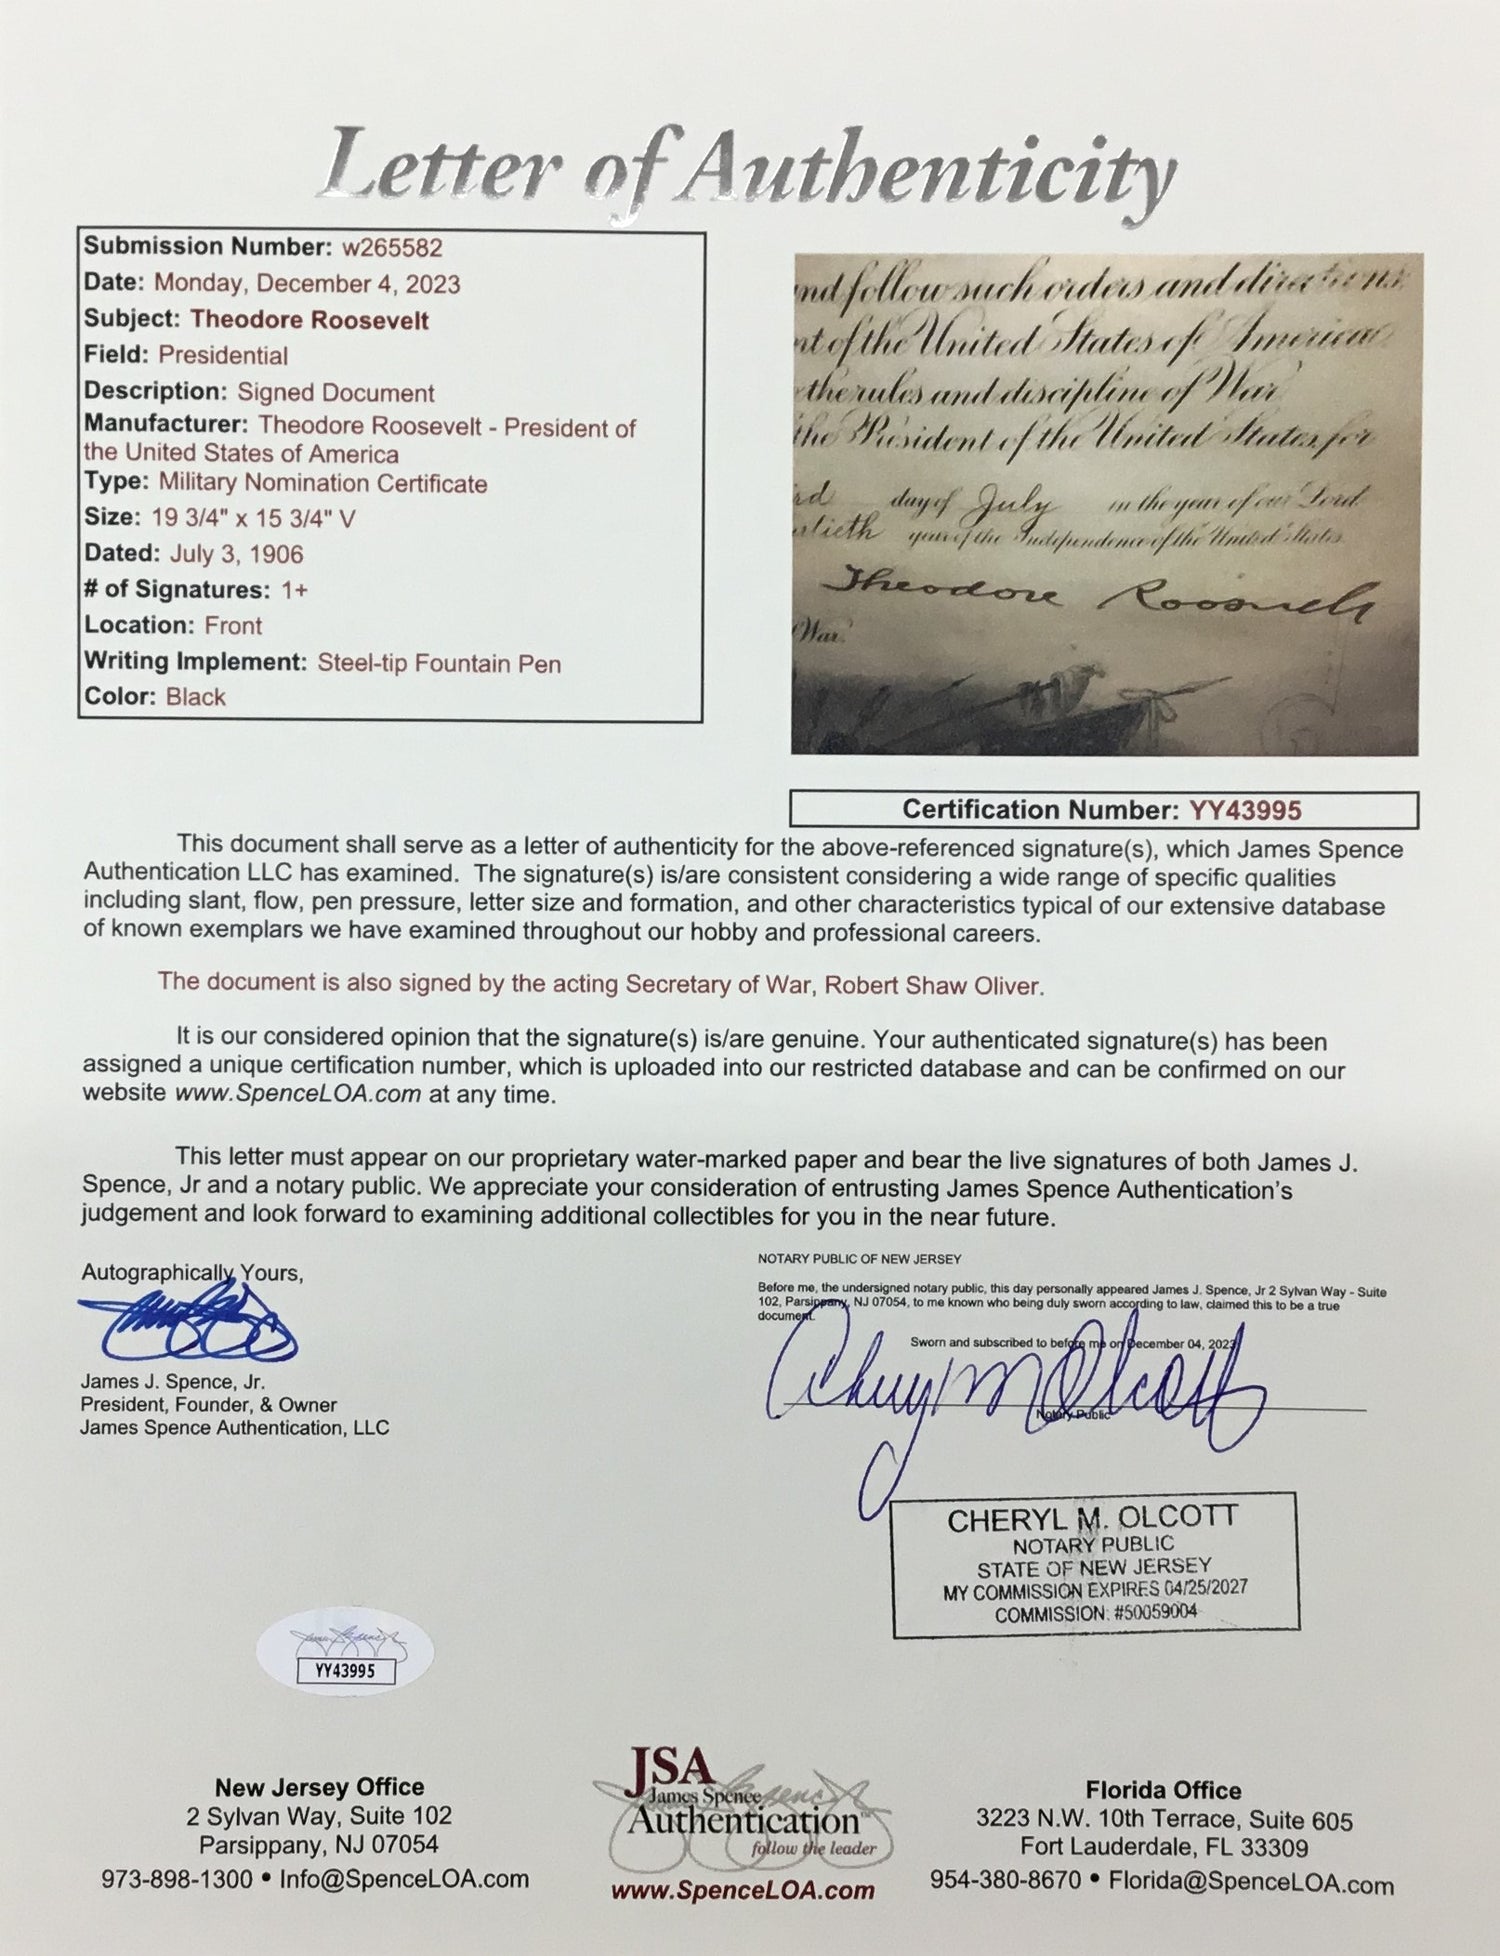 Letter of Authenticity
Submission Number: w265582
Date: Monday, December 4, 2023
Subject: Theodore Roosevelt
Field: Presidential
Description: Signed Document
Manufacturer: Theodore Roosevelt - President of
the United States of America
Type: Military Nomination Certificate
Size: 19 3/4" x 15 3/4" V
Dated: July 3, 1906
# of Signatures: 1+
Location: Front
Writing Implement: Steel-tip Fountain Pen
Color: Black
and follow such orders and directions
nt of the United States of America
the rules and discipline of War
the President of the United States for
rd day of July in the year of our Lord
ntieth year of the Independence of the United States
Theodore Roosevelt
War.
Certification Number: YY43995
This document shall serve as a letter of authenticity for the above-referenced signature(s), which James Spence
Authentication LLC has examined. The signature(s) is/are consistent considering a wide range of specific qualities
including slant, flow, pen pressure, letter size and formation, and other characteristics typical of our extensive database
of known exemplars we have examined throughout our hobby and professional careers.
The document is also signed by the acting Secretary of War, Robert Shaw Oliver.
It is our considered opinion that the signature(s) is/are genuine. Your authenticated signature(s) has been
assigned a unique certification number, which is uploaded into our restricted database and can be confirmed on our
website www.SpenceLOA.com at any time.
This letter must appear on our proprietary water-marked paper and bear the live signatures of both James J.
Spence, Jr and a notary public. We appreciate your consideration of entrusting James Spence Authentication's
judgement and look forward to examining additional collectibles for you in the near future.
Autographically Yours,
James J. Spence, Jr.
President, Founder, & Owner
James Spence Authentication, LLC
NOTARY PUBLIC OF NEW JERSEY
Before me, the undersigned notary public, this day personally appeared James J. Spence, Jr 2 Sylvan Way - Suite
102, Parsippany, NJ 07054, to me known who being duly sworn according to law, claimed this to be a true
document.
Sworn and subscribed to before me on December 04, 2023
Cheryl M Olcott
Notary Public
CHERYL M. OLCOTT
NOTARY PUBLIC
STATE OF NEW JERSEY
MY COMMISSION EXPIRES 04/25/2027
COMMISSION: #50059004
YY43995
New Jersey Office
2 Sylvan Way, Suite 102
Parsippany, NJ 07054
973-898-1300 • Info@SpenceLOA.com
JSA
James Spence
Authentication
follow the leader
www.SpenceLOA.com
Florida Office
3223 N.W. 10th Terrace, Suite 605
Fort Lauderdale, FL 33309
954-380-8670 • Florida@SpenceLOA.com